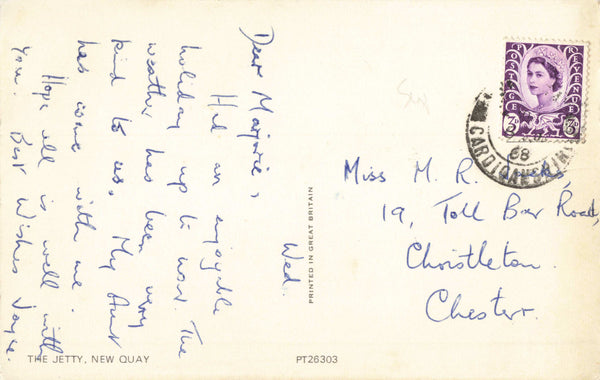 Wed.
Dear Marjorie,
Had an enjoyable
holiday up to now. The
weather has been very
kind to us. My Aunt
has come with me.
Hope all is well with
you. Best Wishes Joyce.
Miss M. R.
19, Toll Bar Road,
Christleton.
Chester.
POSTAGE REVENUE
3D 3D
68
CARDIGANSHIRE
PRINTED IN GREAT BRITAIN
THE JETTY, NEW QUAY
PT26303